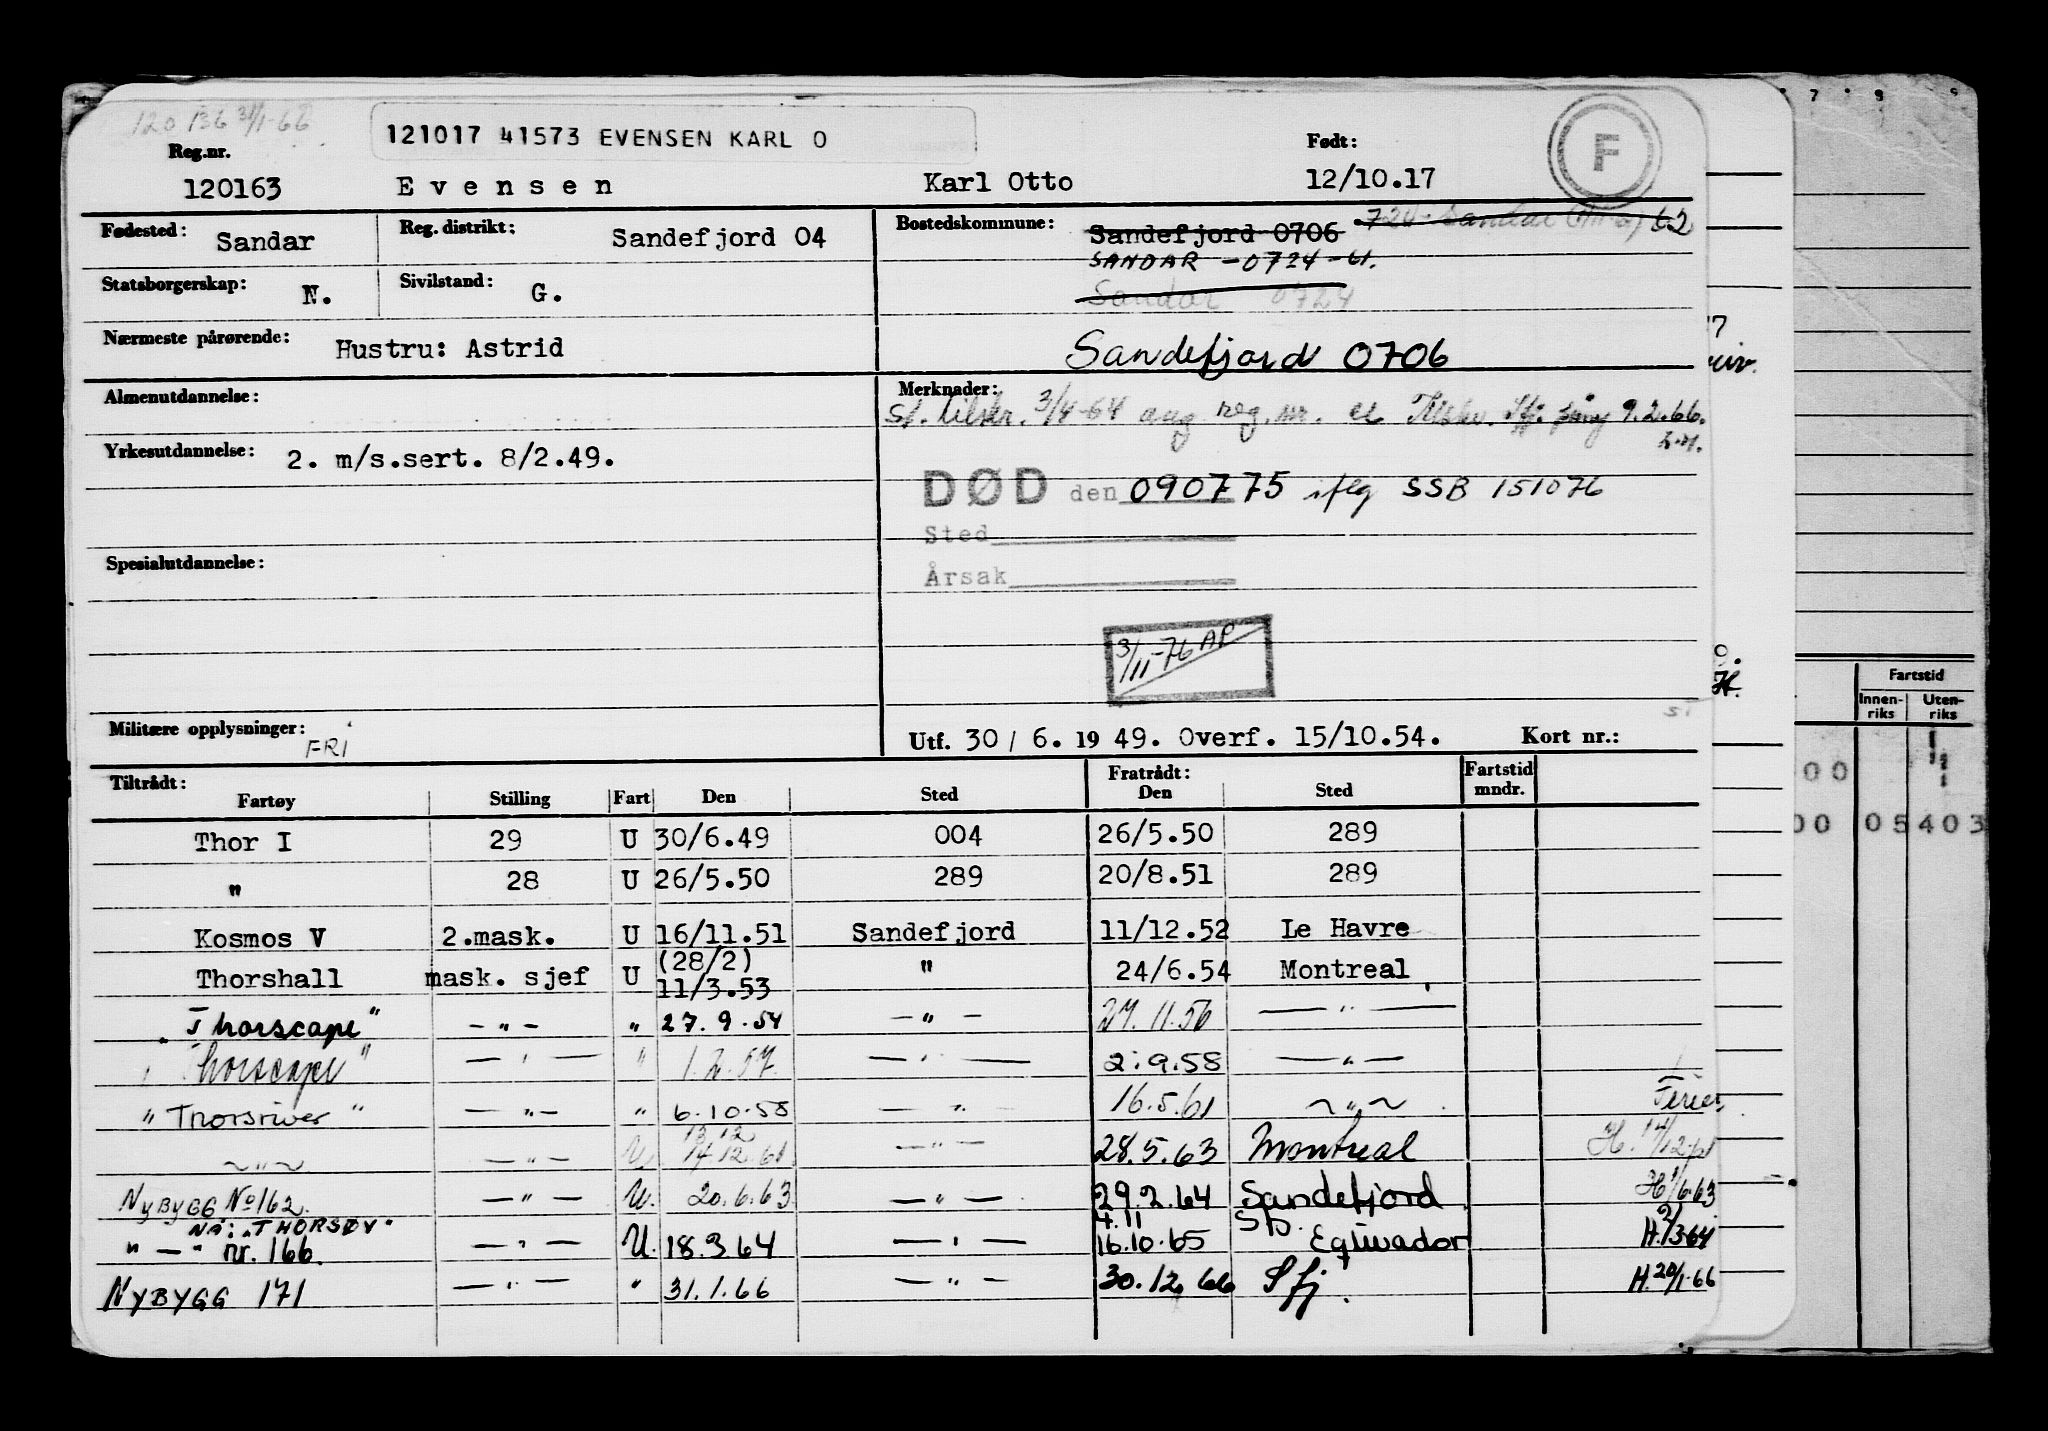 120 136 31/1-66
121017 41573 EVENSEN KARL O
F
Reg.nr.
Født:
120163 Evensen Karl Otto 12/10.17
Fødested: Sandar Reg. distrikt: Sandefjord 04 Bostedskommune: Sandefjord 0706 724 - Sandar 62
SANDAR - 0724 - 61.
Statsborgerskap: N. Sivilstand: G. Sandar 0724
Nærmeste pårørende: Hustru: Astrid Sandefjord 0706
Almenutdannelse: Merknader: 3/4-64 ang reg.nr. 9.2.66.
Yrkesutdannelse: 2. m/s.sert. 8/2.49.
DØD den 090775 iflg SSB 151076
Sted
Spesialutdannelse: Årsak
3/11-76 AP
Militære opplysninger: FRI Utf. 30/6. 1949. Overf. 15/10.54. Kort nr.:
Tiltrådt: Fratrådt:
Fartøy Stilling Fart Den Sted Den Sted Fartstid mndr.
Thor I 29 U 30/6.49 004 26/5.50 289
" 28 U 26/5.50 289 20/8.51 289
Kosmos V 2.mask. U 16/11.51 Sandefjord 11/12.52 Le Havre
Thorshall mask. sjef U (28/2) 11/3.53 " 24/6.54 Montreal
"Thorscape" - " - " 27.9.54 - " - 27.11.56 - " -
"Thorscape" - " - " 1.2.57. - " - 2.9.58 - " -
"Thorsriver" - " - " 6.10.58 - " - 16.5.61 - " - Ferie
- " - - " - U 13.12 14.12.61 - " - 28.5.63 Montreal H. 14/12
Nybygg No 162. - " - U. 20.6.63 - " - 29.2.64 Sandefjord H 1/6.63
NÅ: "THORSØY"
" - " nr. 166. - " - U. 18.3.64 - " - 4.11 16.10.65 Equador H. 2/3.64
NYBYGG 171 - " - " 31.1.66 - " - 30.12.66 Sfj. H. 20/1-66
Fartstid
Innen-riks Uten-riks
00
00 05403